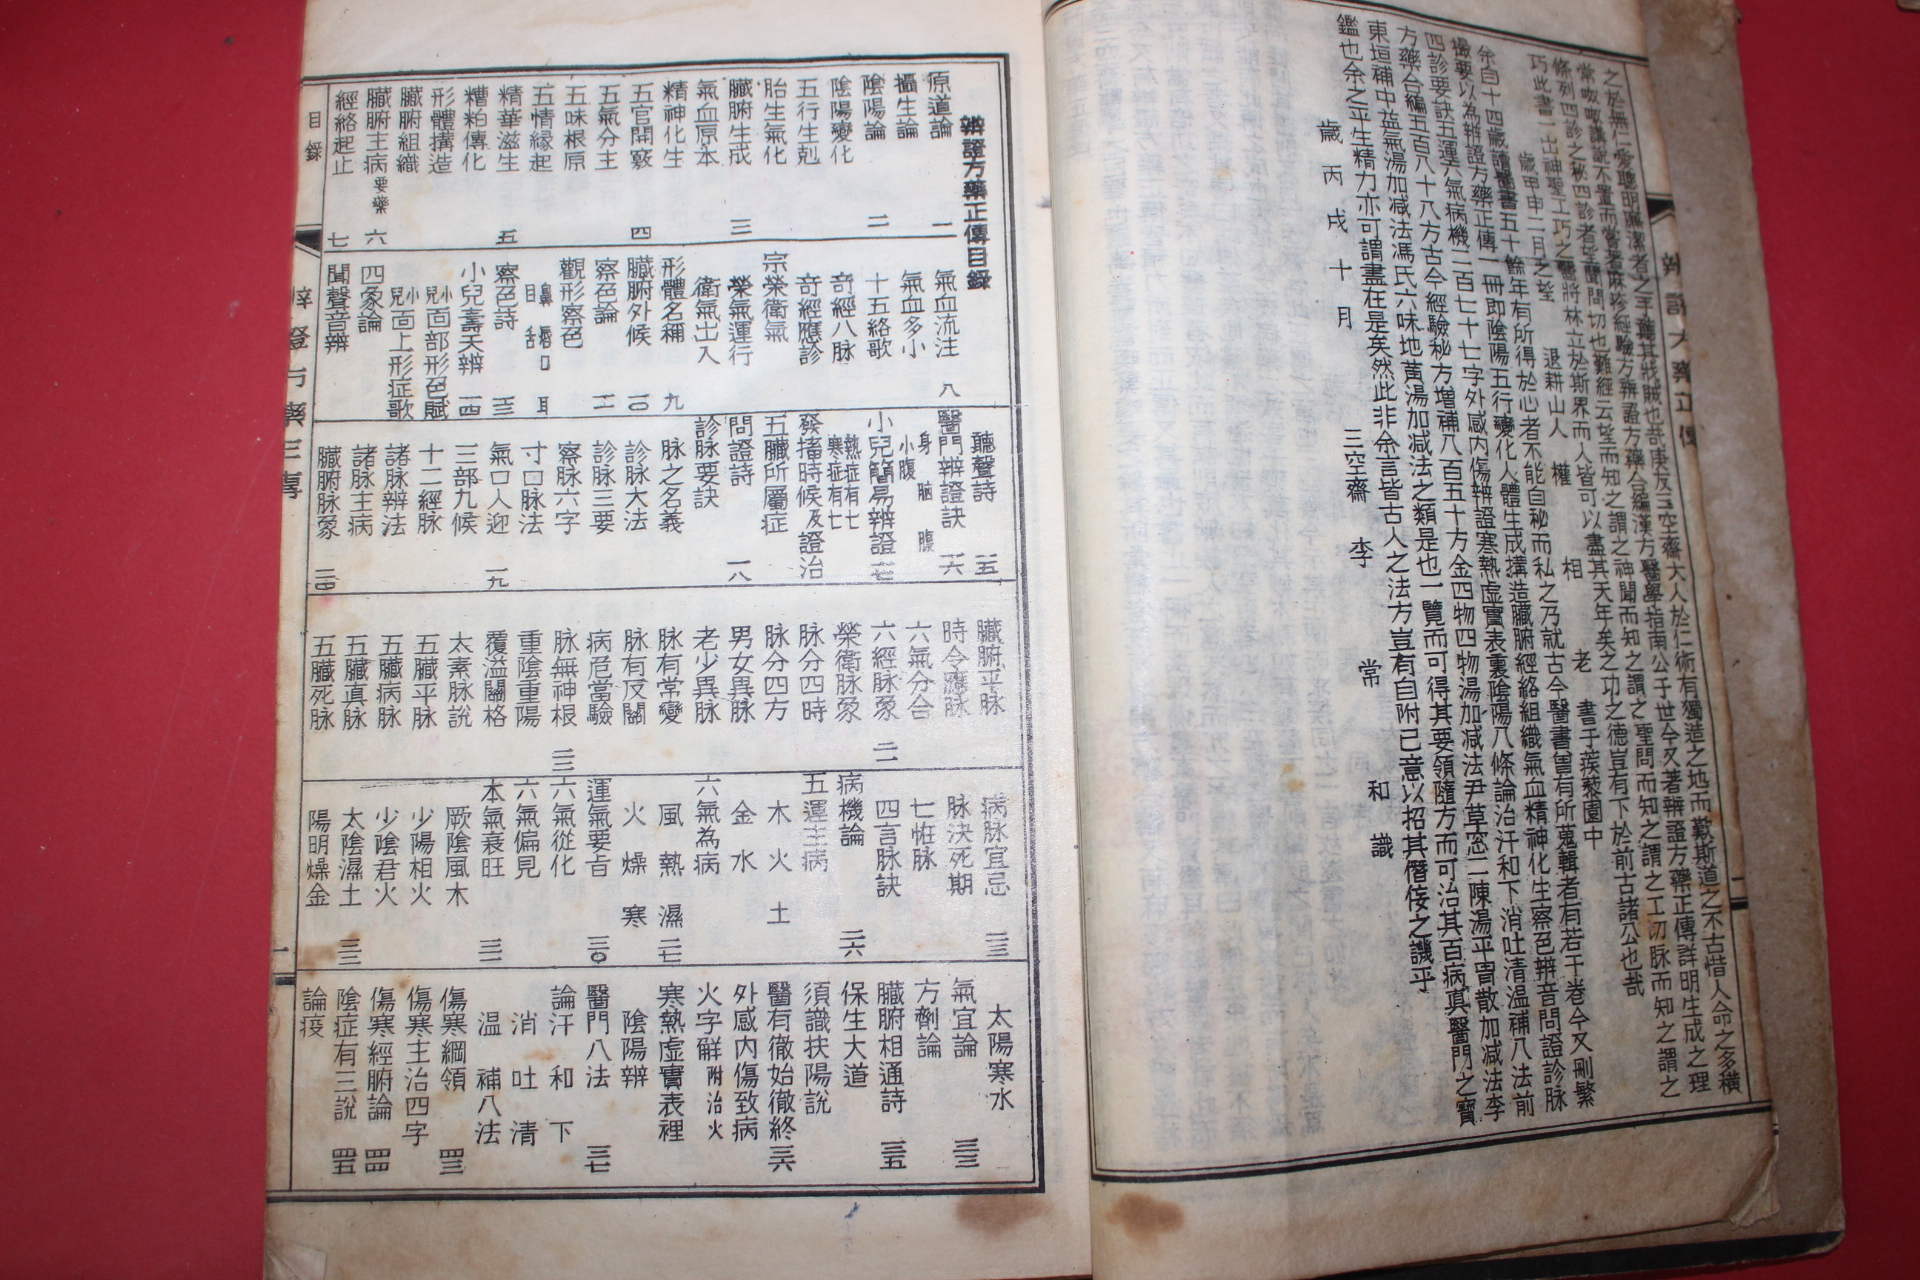 之於無仁愛聰明廉潔者之手
常
條列四診之秘四診者望聞問切也難經云望而知之謂之神聞而知之謂之聖問而知之謂之工切脉而知之謂之
巧此書一出神聖工巧之
歲甲申二月之望 退耕山人 權 相 老 書于蒺藜園中
余自十四歲讀醫書五十餘年有所得於心者不能自秘而私之乃就古今醫書曾有所蒐輯者有若干卷今又刪繁
撮要以為辨證方藥正傳一冊即陰陽五行變化人體生成搆造臟腑經絡組織氣血精神化生察色辨音問證診脉
四診要訣五運六氣病機二百七十七字外感內傷辨證寒熱虛實表裏陰陽八條論治汗和下消吐清温補八法前
方藥合編五百八十八方古今經驗秘方增補八百五十方金四物四物湯加减法尹草窓二陳湯平胃散加减法李
東垣補中益氣湯加减法馮氏六味地黃湯加减法之類是也一覽而可得其要領隨方而可治其百病真醫門之寶
鑑也余之平生精力亦可謂盡在是矣然此非余言皆古人之法方豈有自附己意以招其僭侫之譏乎
歲丙戌十月 三空齋 李 常 和 識
辨證方藥正傳目錄
原道論 一
攝生論
陰陽論 二
陰陽變化
五行生剋
胎生氣化
臟腑生成 三
氣血原本
精神化生
五官開竅 四
五氣分主
五味根原
五情緣起
精華滋生 五
糟粕傳化
形體搆造
臟腑組織
臟腑主病 要藥 六
經絡起止 七
氣血流注 八
氣血多小
十五絡歌
奇經八脉
奇經應診
宗榮衛氣
榮氣運行
衛氣出入
形體名稱 九
臟腑外候 一0
察色論 一一
觀形察色
鼻 唇口 耳
目 舌
察色詩 一三
小兒壽夭辨 一四
小兒面部形色賦
小兒面上形症歌
四象論
聞聲音辨
聽聲詩 一五
醫門辨證訣 一六
身 脇 腹
小腹
小兒簡易辨證 一七
熱症有七
寒症有七
發搐時候及證治
五臟所屬症
問證詩 一八
診脉要訣
脉之名義
診脉大法
診脉三要
察脉六字
寸口脉法
氣口人迎 一九
三部九候
十二經脉
諸脉辨法
諸脉主病
臟腑脉象 二0
臟腑平脉
時令應脉
六氣分合
六經脉象 二一
榮衛脉象
脉分四時
脉分四方
男女異脉
老少異脉
脉有常變
脉有反關
病危當驗
脉無神根 二二
重陰重陽
覆溢關格
太素脉說
五臟平脉
五臟病脉
五臟真脉
五臟死脉
病脉宜忌 二三
脉決死期
七恠脉
四言脉訣
病機論 二六
五運主病
木 火 土
金 水
六氣為病
風 熱 濕 二七
火 燥 寒
運氣要旨 三0
六氣從化
六氣偏見
本氣衰旺 三一
厥陰風木
少陽相火
少陰君火
太陰濕土 三二
陽明燥金
太陽寒水
氣宜論 三三
方劑論
臟腑相通詩 三五
保生大道
須識扶陽說
醫有徹始徹終 三六
外感内傷致病
火字解 附治火
寒熱虛實表裡
陰陽辨
醫門八法 三七
論汗 和 下
消 吐 清
温 補八法
傷寒綱領 四三
傷寒主治四字
傷寒經腑論 四四
陰症有三說 四五
論疫
目錄
一